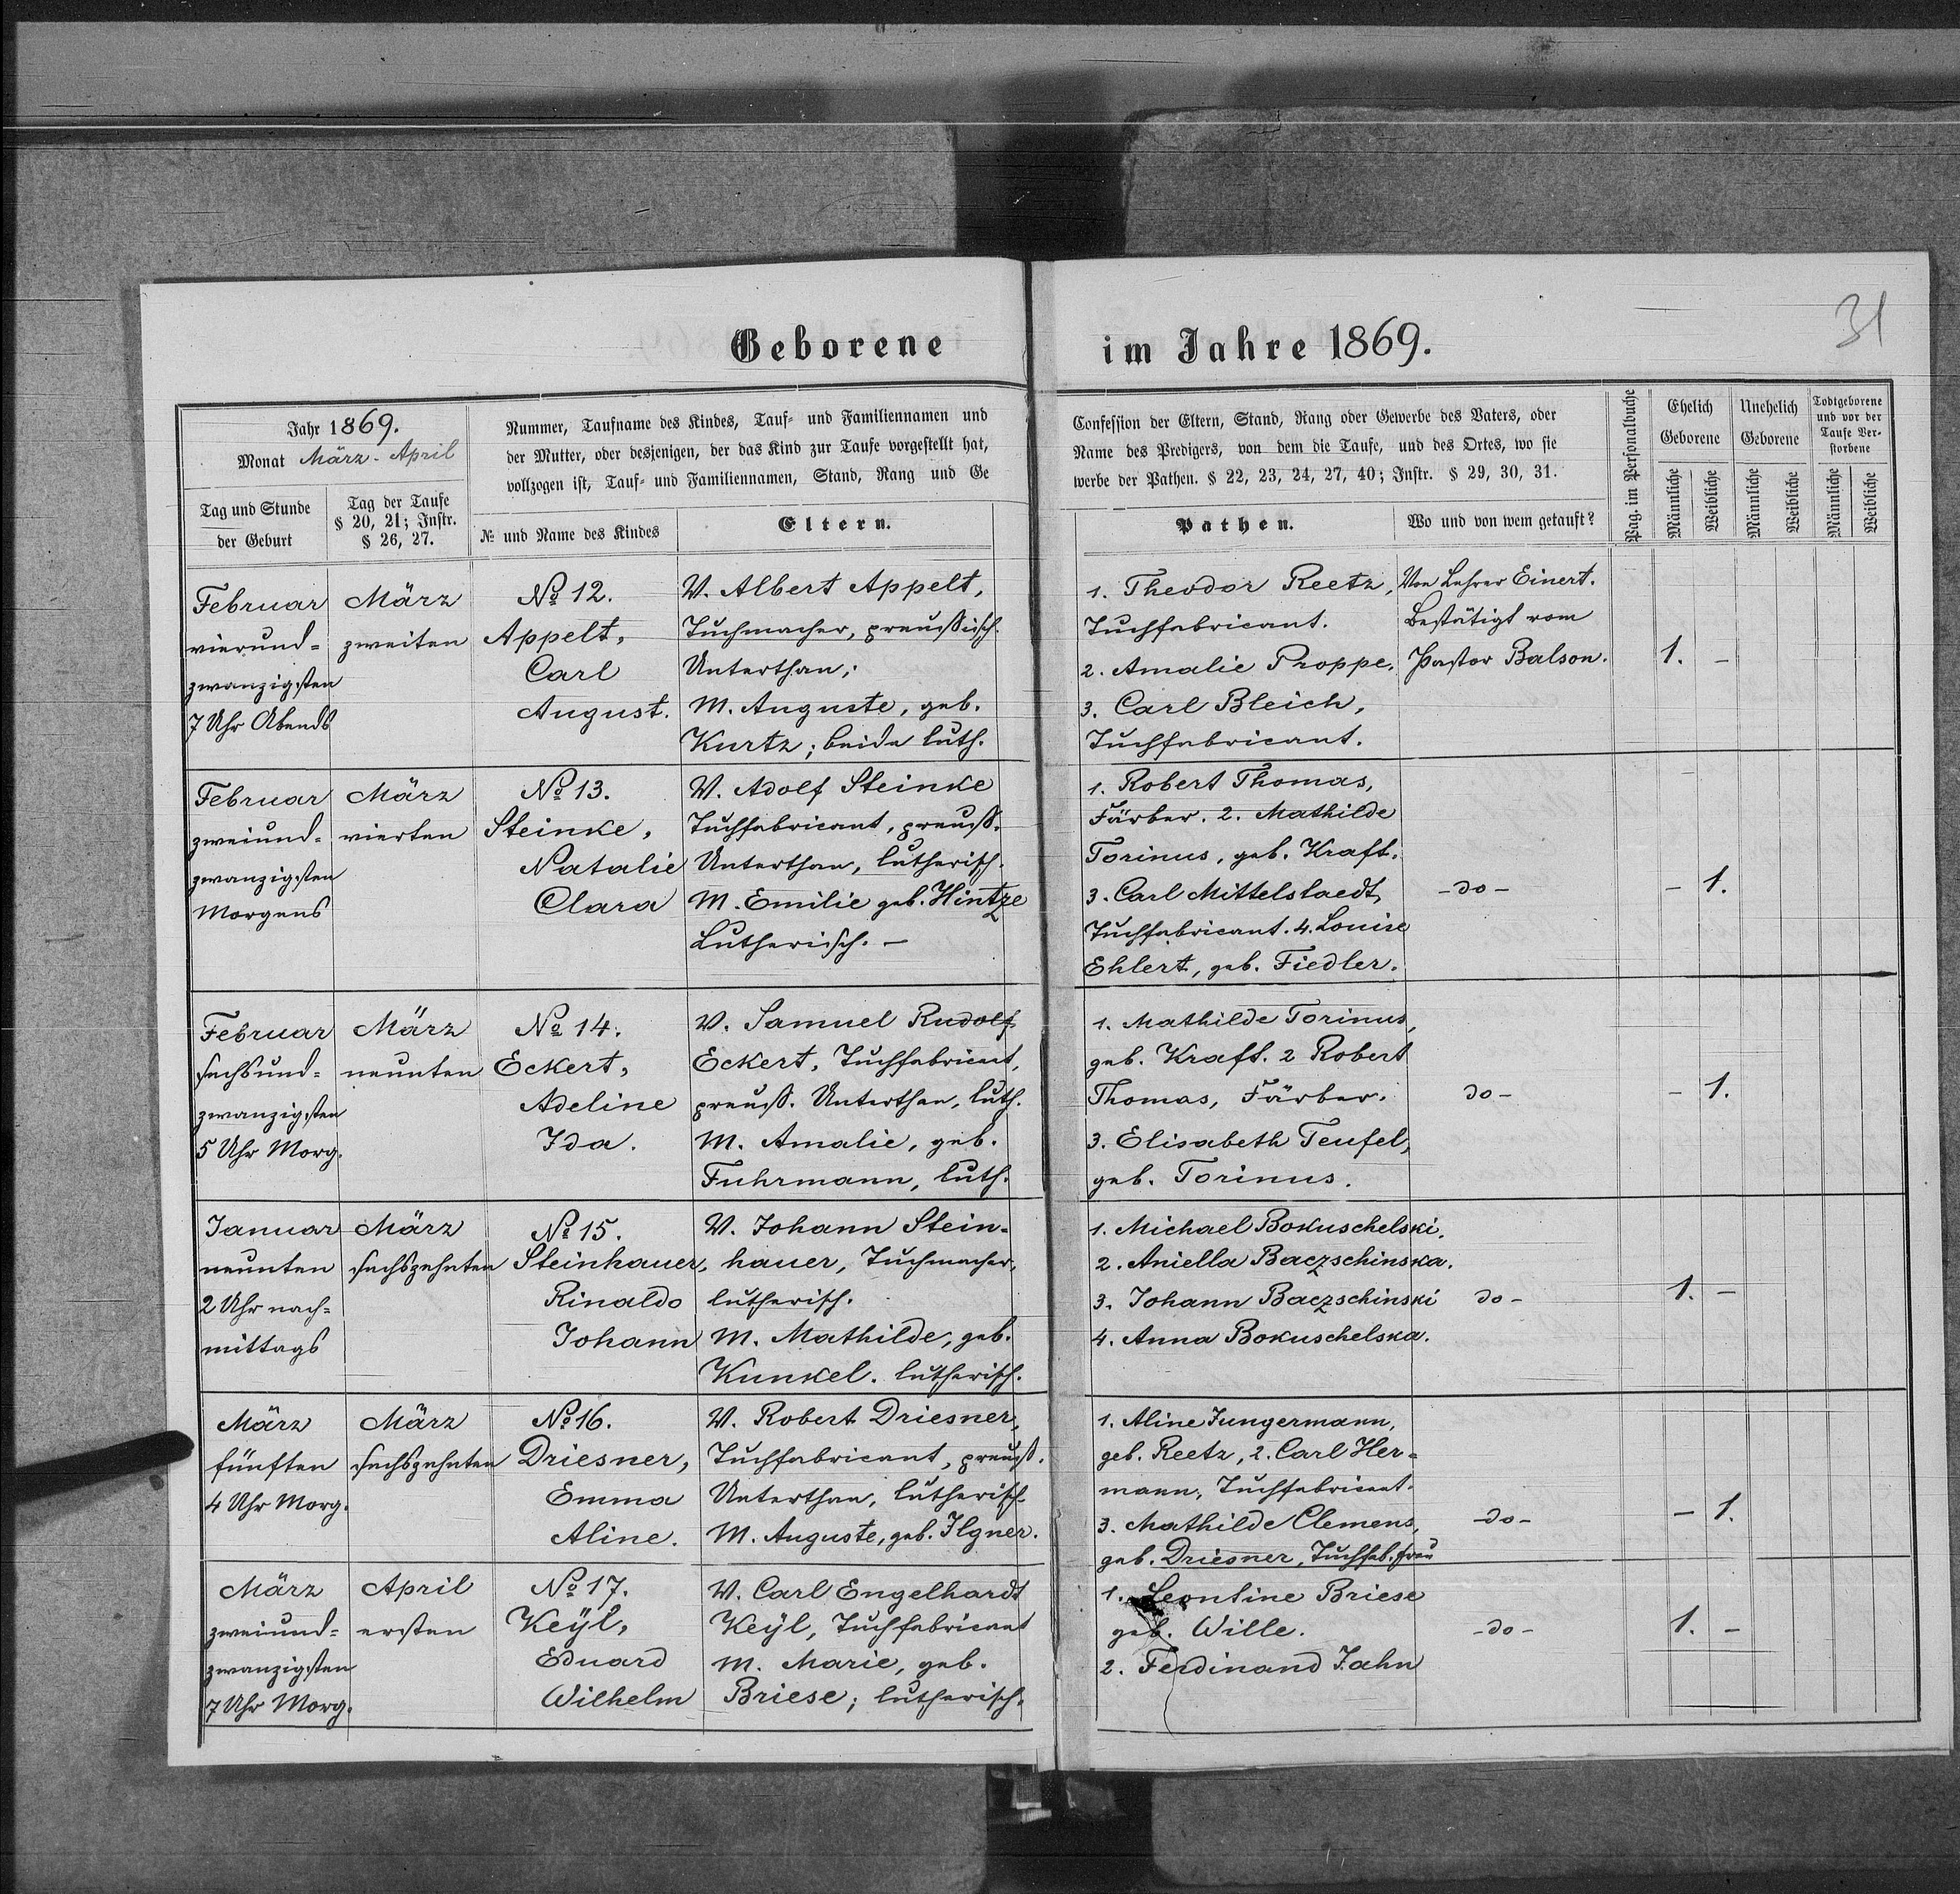 31
Geborene im Jahre 1869.
Jahr 1869.
Monat März - April
Tag und Stunde
der Geburt
Tag der Taufe
§ 20, 21; Instr.
§ 26, 27.
Nummer, Taufname des Kindes, Tauf- und Familiennamen und
der Mutter, oder desjenigen, der das Kind zur Taufe vorgestellt hat,
vollzogen ist, Tauf- und Familiennamen, Stand, Rang und Ge
№ und Name des Kindes
Eltern.
Confession der Eltern, Stand, Rang oder Gewerbe des Vaters, oder
Name des Predigers, von dem die Taufe, und des Ortes, wo sie
werbe der Pathen. § 22, 23, 24, 27, 40; Instr. § 29, 30, 31.
Pathen.
Wo und von wem getauft?
Pag. im Personalbuche
Ehelich
Geborene
Männliche
Weibliche
Unehelich
Geborene
Männliche
Weibliche
Todtgeborene
und vor der
Taufe Ver-
storbene
Männliche
Weibliche
Februar
vierund-
zwanzigsten
7 Uhr Abends
März
zweiten
№ 12.
Appelt,
Carl
August.
V. Albert Appelt,
Tuchmacher, preussisch.
Unterthan;
M. Auguste, geb.
Kurtz; beide luth.
1. Theodor Reetz,
Tuchfabricant.
2. Amalie Proppe.
3. Carl Bleich,
Tuchfabricant.
Von Lehrer Einert.
Bestätigt vom
Pastor Balson.
1. -
Februar
zweiund-
zwanzigsten
Morgens
März
vierten
№ 13.
Steinke,
Natalie
Clara
V. Adolf Steinke
Tuchfabricant, preuss.
Unterthan, lutherisch.
M. Emilie geb. Hintze
Lutherisch. -
1. Robert Thomas,
Färber. 2. Mathilde
Torinus, geb. Kraft.
3. Carl Mittelstaedt,
Tuchfabricant. 4. Louise
Ehlert, geb. Fiedler.
- do -
- 1.
Februar
sechsund-
zwanzigsten
5 Uhr Morg.
März
neunten
№ 14.
Eckert,
Adeline
Ida.
V. Samuel Rudolf
Eckert, Tuchfabricant,
preuss. Unterthan, luth.
M. Amalie, geb.
Fuhrmann, luth.
1. Mathilde Torinus,
geb. Kraft. 2 Robert
Thomas, Färber.
3. Elisabeth Teufel,
geb. Torinus.
do -
- 1.
Januar
neunten
2 Uhr nach-
mittags
März
sechszehnten
№ 15.
Steinhauer,
Rinaldo
Johann
V. Johann Stein-
hauer, Tuchmacher,
lutherisch.
M. Mathilde, geb.
Kunkel. lutherisch.
1. Michael Bokuschelski.
2. Aniella Baczschinska.
3. Johann Baczschinski
4. Anna Bokuschelska.
do -
1. -
März
fünften
4 Uhr Morg.
März
sechszehnten
№ 16.
Driesner,
Emma
Aline.
V. Robert Driesner,
Tuchfabricant, preuss.
Unterthan, lutherisch.
M. Auguste, geb. Ilgner.
1. Aline Jungermann,
geb. Reetz, 2. Carl Her-
mann, Tuchfabricant.
3. Mathilde Clemens,
geb. Driesner, Tuchfab. frau
- do -
- 1.
März
zweiund-
zwanzigsten
7 Uhr Morg.
April
ersten
№ 17.
Keyl,
Eduard
Wilhelm
V. Carl Engelhardt
Keyl, Tuchfabricant
M. Marie, geb.
Briese; lutherisch.
1. Leontine Briese
geb. Wille.
2. Ferdinand Jahn
- do -
1. -